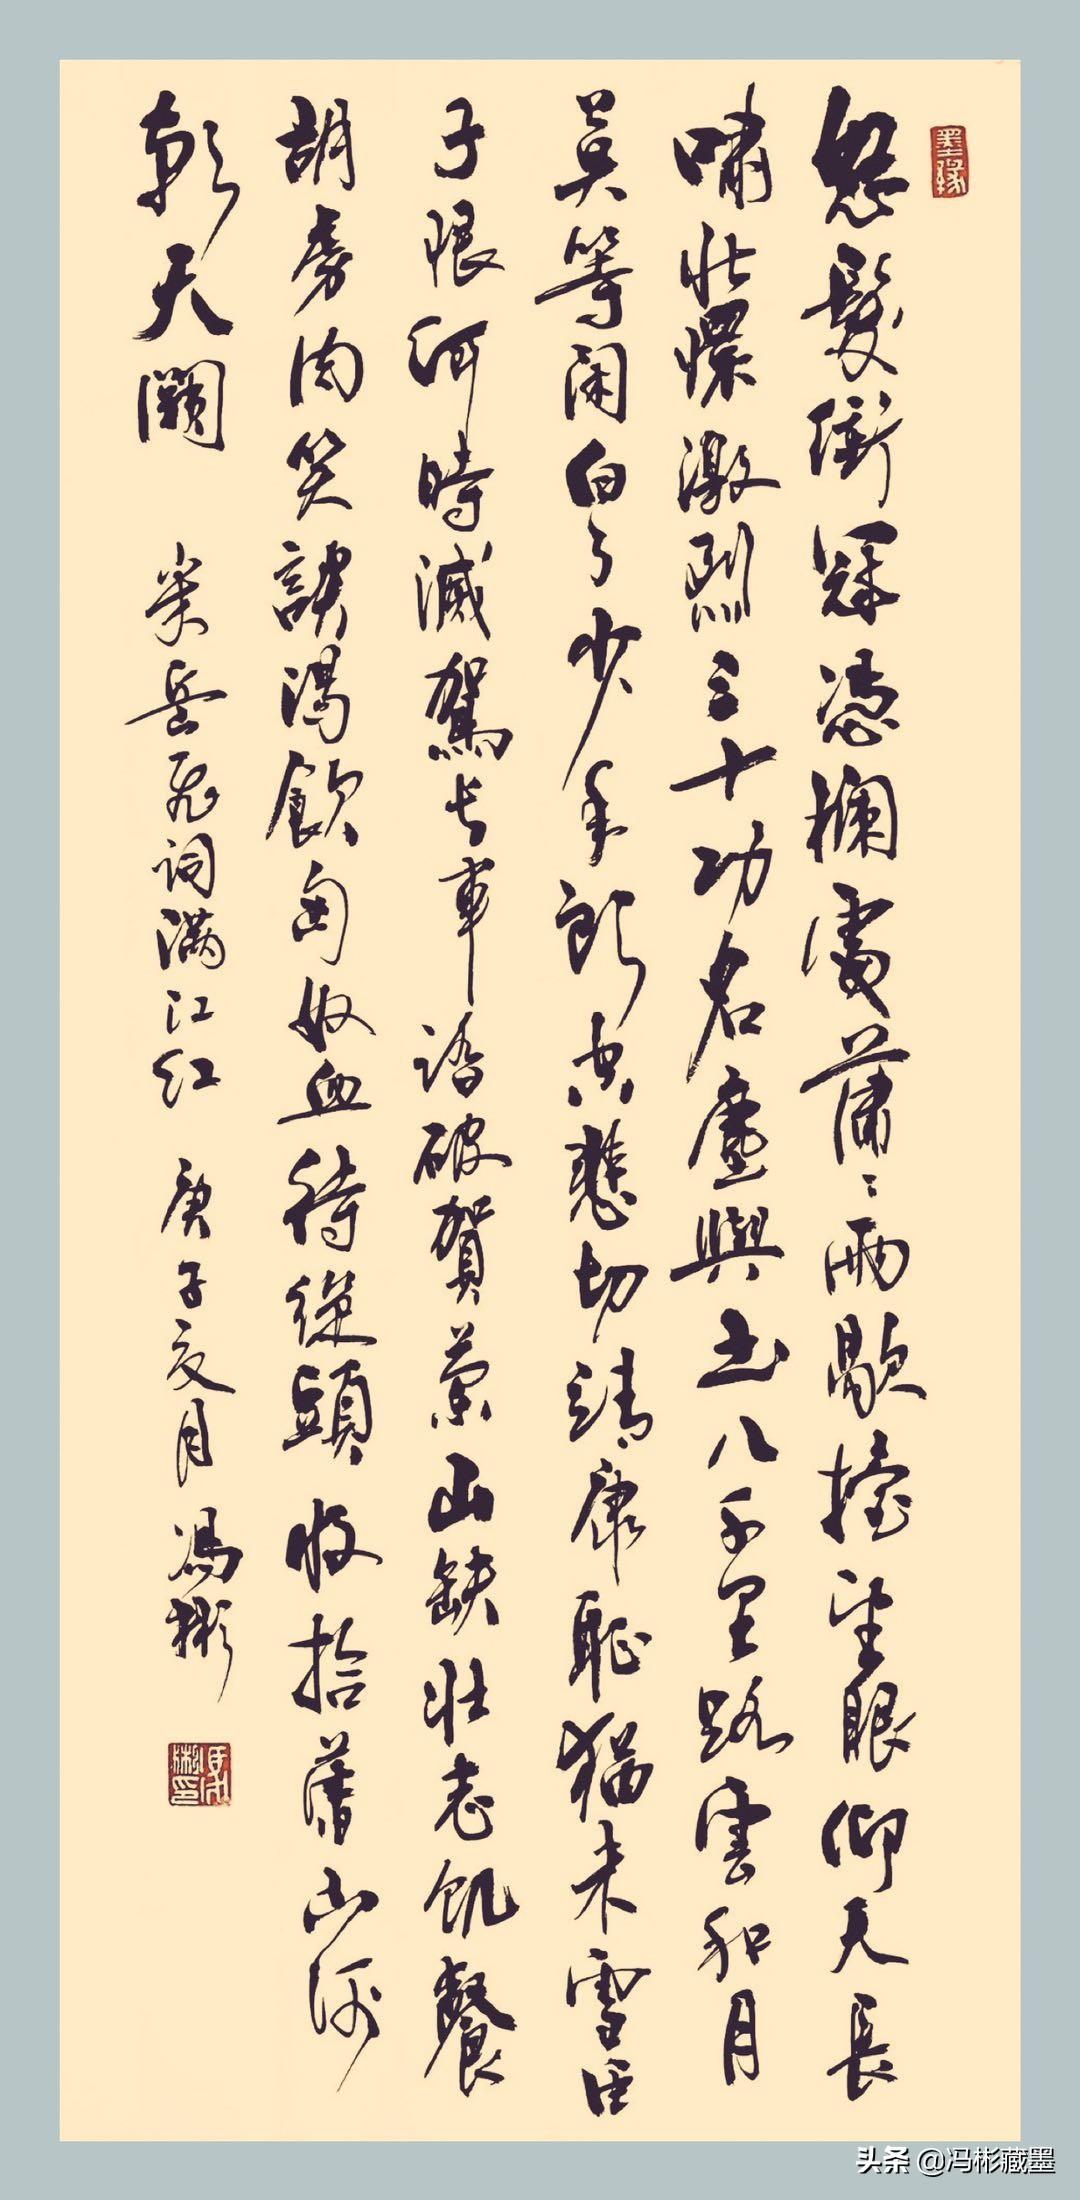 墨緣
怒髮衝冠憑欄處蕭〻雨歇擡望眼仰天長
嘯壯懷激烈三十功名塵與土八千里路雲和月
莫等閑白了少年頭空悲切靖康恥猶未雪臣
子恨何時滅駕長車踏破賀蘭山缺壯志飢餐
胡虜肉笑談渴飲匈奴血待從頭收拾舊山河
朝天闕 录岳飛词满江红 庚子夏月 馮彬
馮彬印
头条 @冯彬藏墨